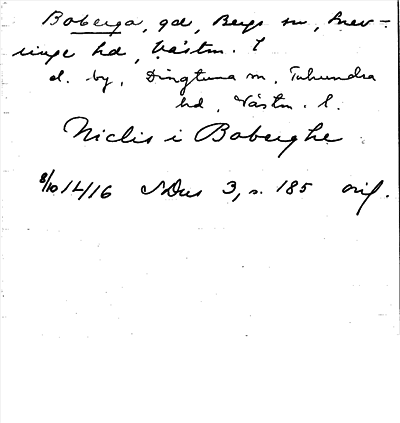 Boberga, gd, Bergs sn, Snev-
ringe hd, Västm. l
el. by, Dingtuna sn, Tuhundra
hd, Västm. l.
Niclis i Boberghe
8/10 1416 SDns 3, s. 185 orig.